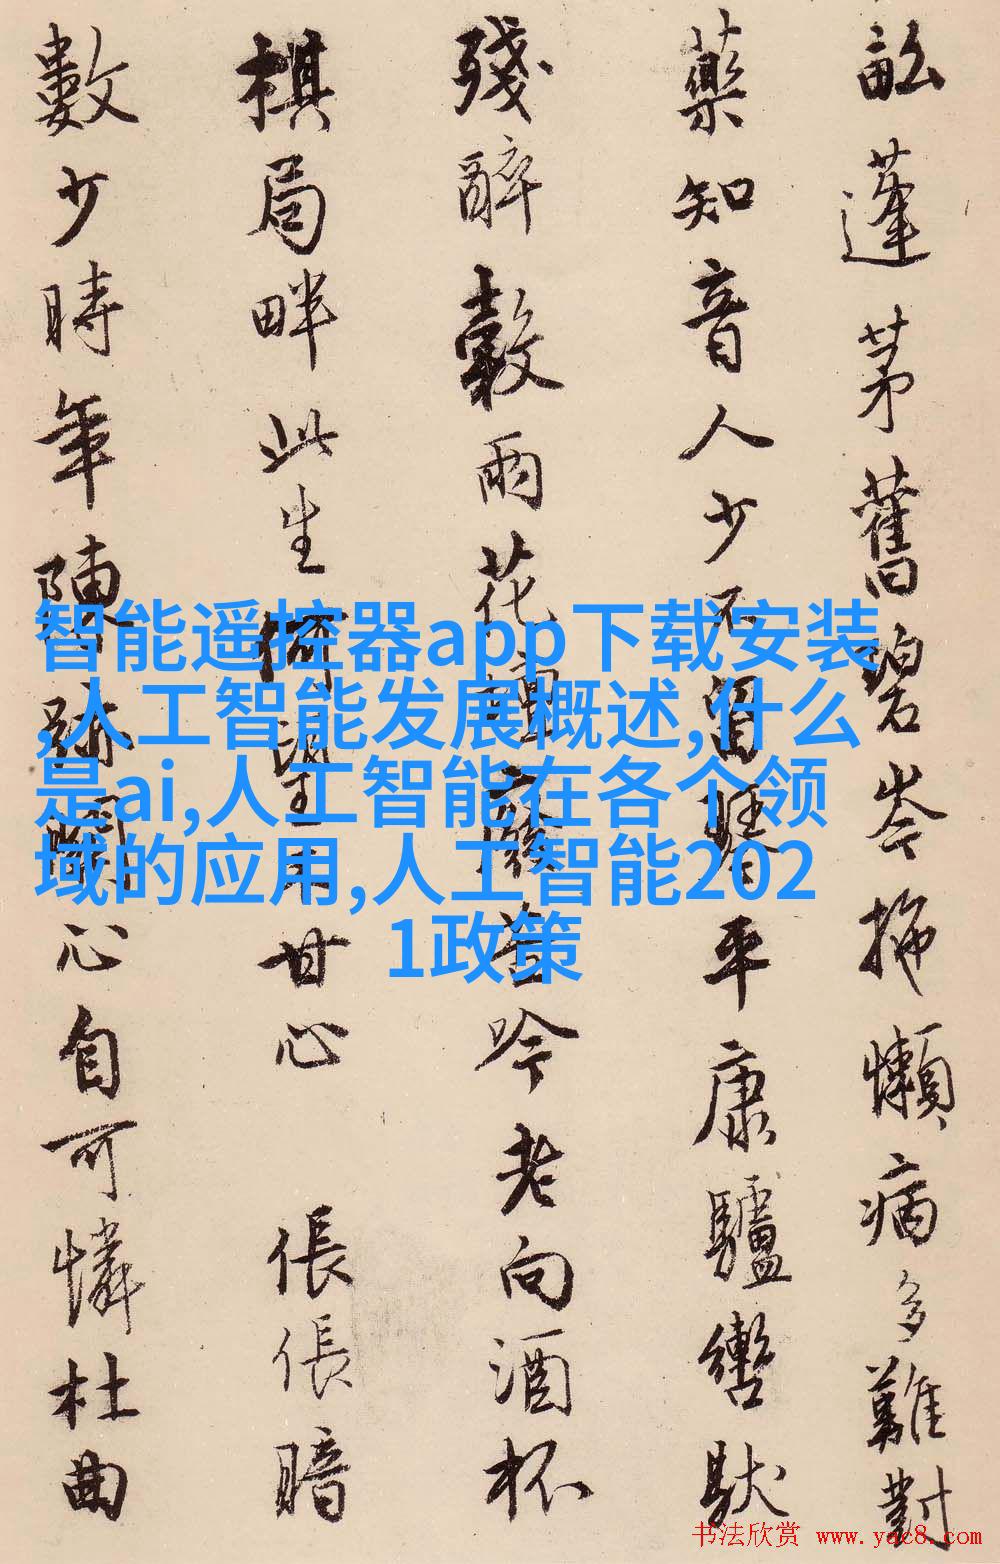 畆蓬茅舊碧岑拖懶病多難對
藥知音人少不留琴平康驢轡馱
殘醉穀雨花壇費苦吟老向酒杯
棋局畔此生何望不甘心 悵悵暗
數少時年陳跡關心自可憐杜曲
智能遥控器app下载安装
,人工智能发展概述,什么
是ai,人工智能在各个领
域的应用,人工智能202
1政策
书法欣赏 www.yac8.com